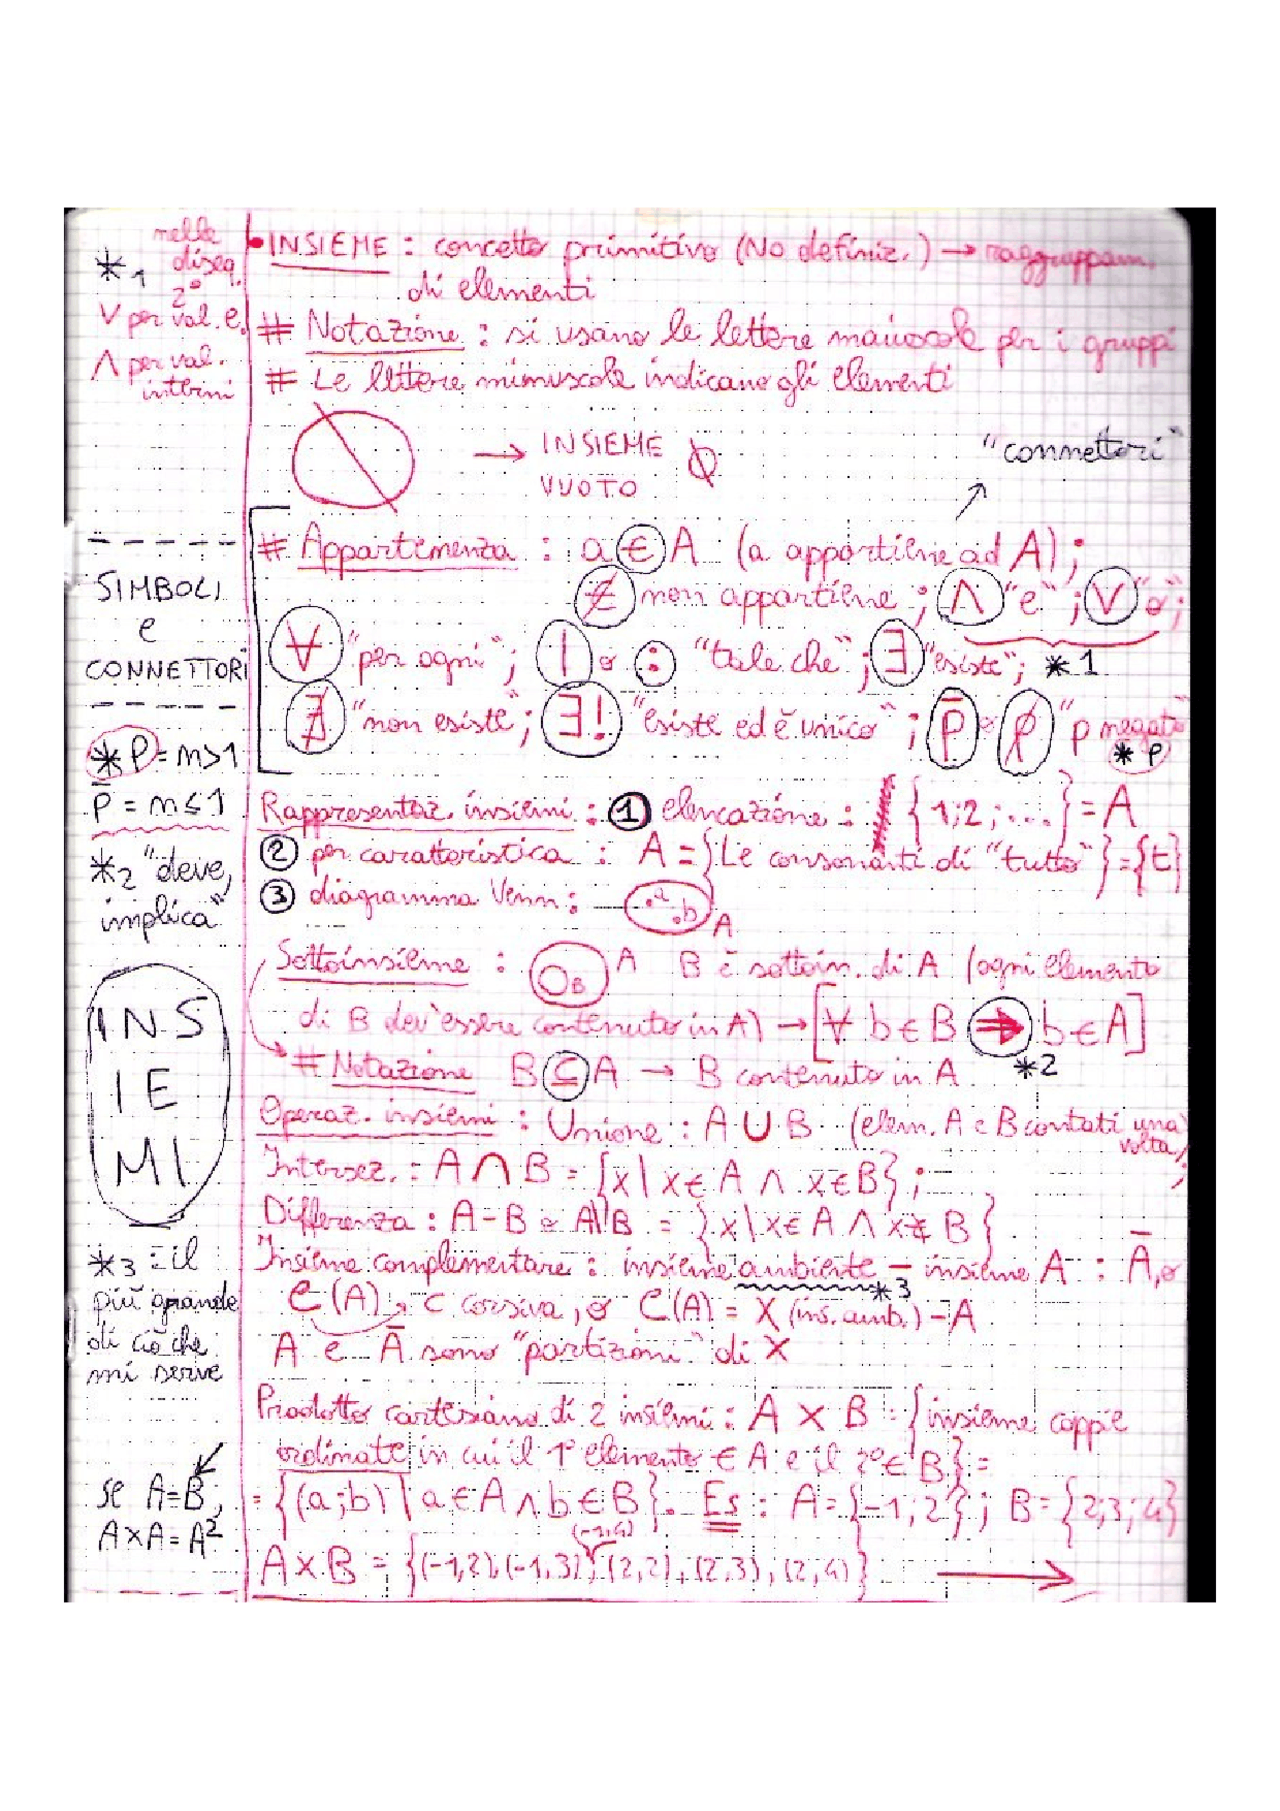 nelle
*1 diseq.
2°
V per val. e.
Λ per val.
interni
• INSIEME : concetto primitivo (No definiz.) → raggruppam.
di elementi
# Notazione : si usano le lettere maiuscole per i gruppi
# Le lettere minuscole indicano gli elementi
→ INSIEME ∅
VUOTO
"connettori"
SIMBOLI
e
CONNETTORI
# Appartenenza : a ∈ A (a appartiene ad A) ;
∉ non appartiene ; Λ "e" ; V "o" ;
∀ "per ogni" ; | o : "tale che" ; ∃ "esiste" ; *1
∄ "non esiste" ; ∃! "esiste ed è unico" ; p̅ o p̸ "p negato"
*P
*P = n>1
p̅ = n≤1
*2 "deve,
implica"
Rappresentaz. insiemi : 1 elencazione : {1;2;...} = A
2 per caratteristica : A = {Le consonanti di "tutto"} = {t}
3 diagramma Venn : .a .b A
INS
IE
MI
Sottoinsieme : B A B è sottoin. di A (ogni elemento
di B dev'essere contenuto in A) → [∀ b ∈ B ⇒ b ∈ A]
*2
# Notazione B ⊆ A → B contenuto in A
Operaz. insiemi : Unione : A ∪ B (elem. A e B contati una
volta) ;
Intersez. : A ∩ B = {x | x ∈ A ∧ x ∈ B} ;
Differenza : A - B o A\B = {x | x ∈ A ∧ x ∉ B}
Insieme complementare : insieme ambiente - insieme A : A̅, o
*3
C(A) → C corsiva, o C(A) = X (ins. amb.) - A
A e A̅ sono "partizioni" di X
*3 = il
più grande
di ciò che
mi serve
Prodotto cartesiano di 2 insiemi : A x B = {insieme coppie
ordinate in cui il 1° elemento ∈ A e il 2° ∈ B} =
= {(a;b) | a ∈ A ∧ b ∈ B}. Es : A = {-1;2} ; B = {2;3;4}
(-1,4)
A x B = {(-1,2),(-1,3),(2,2),(2,3),(2,4)}
se A=B,
A x A = A²